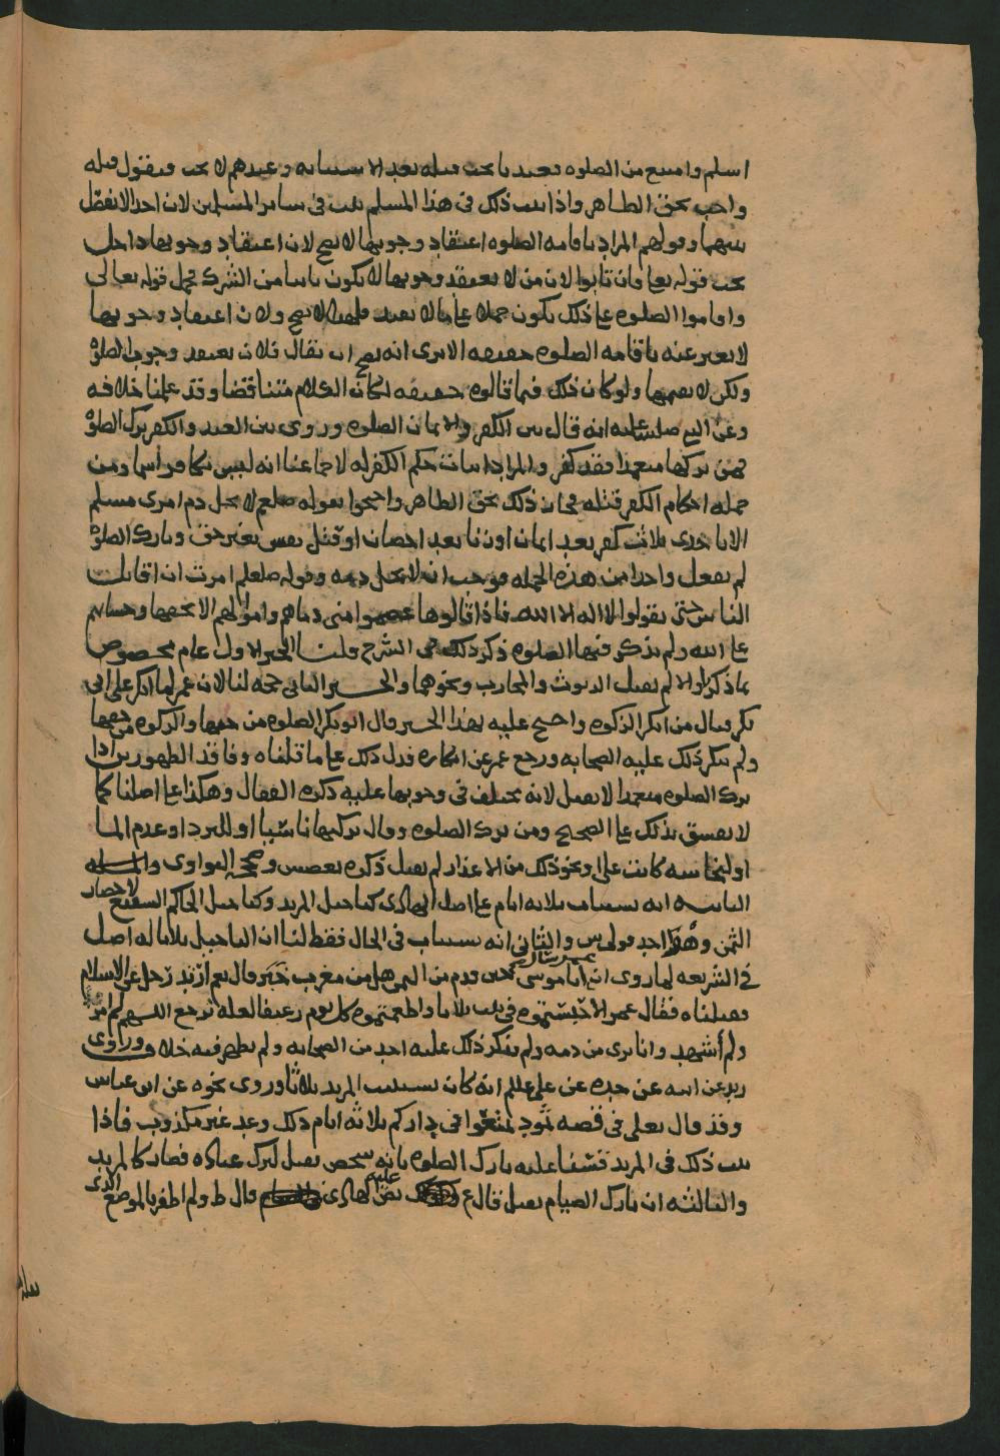 اسلم وامتنع من الصلوه فعندنا يجب قتله بعد الاستتابه وعندهم لا يجب فنقول قتله
واجب بحق الظاهر واذا ثبت ذلك في هذا المسلم ثبت في سائر المسلمين لان احدا لا يفصل
بينهما وقولهم المراد باقامه الصلوه اعتقاد وجوبها لا يصح لان اعتقاد وجوبها داخل
تحت قوله تعا فان تابوا لان من لا يعتقد وجوبها لا يكون تائبا من الشرك فحمل قوله تعالى
واقاموا الصلوه على ذلك يكون حملا على ما لا يفيد فلهذا لا يصح ولان اعتقاد وجوبها
لا يعبر عنه باقامه الصلوه حقيقه الا ترى انه يصح ان يقال فلان يعتقد وجوب الصلوه
ولكن لا يقيمها ولو كان ذلك فيما قالوه حقيقه لكان الكلام متناقضا وقد علمنا خلافه
وعن النبي صلى الله عليه انه قال بين الكفر والايمان الصلوه وروي بين العبد والكفر ترك الصلوه
فمن تركها متعمدا فقد كفر والمراد اثبات حكم الكفر له لاجماعنا انه ليس بكافر اسما ومن
جمله احكام الكفر قتله فبان ذلك بحق الظاهر واحتجوا بقوله صلعم لا يحل دم امرى مسلم
الا باحدى ثلاث كفر بعد ايمان او زنا بعد احصان او قتل نفس بغير حق وتارك الصلوه
لم يفعل واحدا من هذه الجمله فوجب ان لا يحل دمه وقوله صلعلم امرت ان اقاتل
الناس حتى يقولوا لا اله الا الله فاذا قالوها عصموا مني دماهم واموالهم الا بحقها وحسابهم
على الله ولم يذكر فيها الصلوه ذكر ذلك في الشرح قلنا الخبر الاول عام مخصوص
بما ذكر اولا لم يقتل الديوث والمحارب ونحوهما والخبر الثاني حجه لنا لان عمر لما انكر على ابي
بكر قتال من انكر الزكوه واحتج عليه بهذا الخبر قال ابو بكر الصلوه من حقها والزكوه من حقها
ولم ينكر ذلك عليه الصحابه ورجع عمر عن انكاره فدل ذلك على ما قلناه وفاقد الطهورين اذا
ترك الصلوه متعمدا لا يقتل لانه مختلف في وجوبها عليه ذكره القفال وهكذا على اصلنا كما
لا يفسق بذلك على الصحيح ومن ترك الصلوه وقال تركتها ناسيا او للبرد او عدم الما
او لنجاسه كانت علي او نحو ذلك من الاعذار لم يقتل ذكره بعضهم وصححه النواوي والمسله
الثانيه انه يستتاب ثلاثه ايام على اصل الهادي كما قيل المرتد وكما قيل الحاكم الشفيع لاحضار
الثمن وهو احد قولي س والثاني انه يستتاب في الحال فقط لنا ان التاجيل ثلاثا له اصل
في الشريعه لما روي ان عمر سال ابا موسى حين قدم من اليمن هل من مغرب خبر قال نعم ارتد رجل عن الاسلام
فقتلناه فقال عمر الا حبستموه في بيت ثلاثا واطعمتموه كل يوم رغيفا لعله يرجع اللهم لم امر
ولم اشهد وانا برى من دمه ولم ينكر ذلك عليه احد من الصحابه ولم يظهر فيه خلاف وراوى
زيد عن ابيه عن جده عن علي عليلم انه كان يستتيب المرتد ثلاثا وروي نحوه عن ابن عباس
وقد قال تعلى في قصه ثمود تمتعوا في داركم ثلاثه ايام ذلك وعد غير مكذوب فاذا
ثبت ذلك في المرتد قسنا عليه تارك الصلوه بانه شخص يقتل لترك عباده فصار كالمرتد
والثالثه ان تارك الصيام يقتل قال ع نص عليه الهادي قال ط ولم اظفر بالموضع الذي